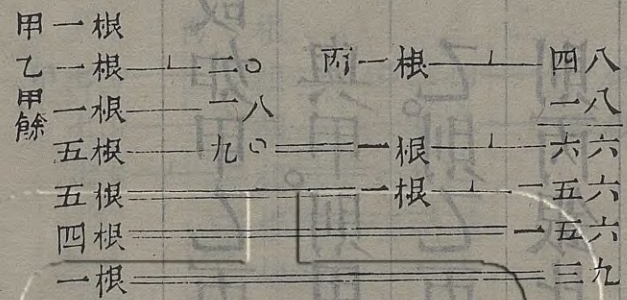 甲一根
乙一根⊥二〇　丙一根⊥四八
甲餘一根—一八　一八
五根—九〇＝一根⊥六六
五根＝一根⊥一五六
四根＝一五六
一根＝三九